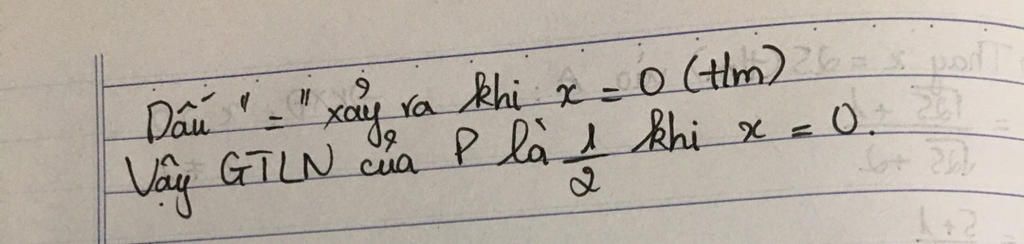 Dấu "=" xảy ra khi x = 0 (t/m)
Vậy GTLN của P là 1/2 khi x = 0.